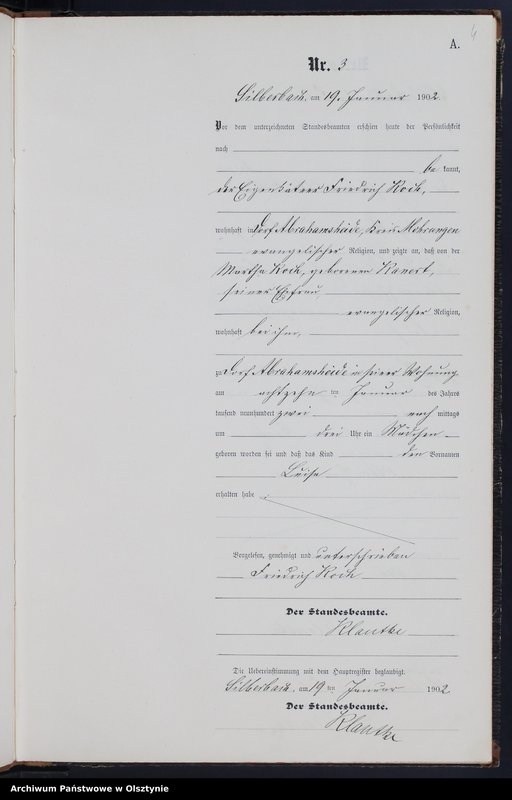 4
A.
Nr. 3
Silberbach, am 19. Januar 1902
Vor dem unterzeichneten Standesbeamten erschien heute der Persönlichkeit
nach
be kannt,
der Eigenkätner Friedrich Koch,
wohnhaft in Dorf Abrahamsheide, Kreis Mohrungen
evangelischer Religion, und zeigte an, daß von der
Martha Koch, geborenen Kanert,
seiner Ehefrau
evangelischer Religion,
wohnhaft bei ihm,
zu Dorf Abrahamsheide in seiner Wohnung
am achtzehn ten Januar des Jahres
tausend neunhundert zwei nach mittags
um drei Uhr ein Mädchen
geboren worden sei und daß das Kind den Vornamen
Luise
erhalten habe
Vorgelesen, genehmigt und unterschrieben
Friedrich Koch
Der Standesbeamte.
Klautke
Die Uebereinstimmung mit dem Hauptregister beglaubigt.
Silberbach, am 19 ten Januar 1902
Der Standesbeamte.
Klautke
Archiwum Państwowe w Olsztynie